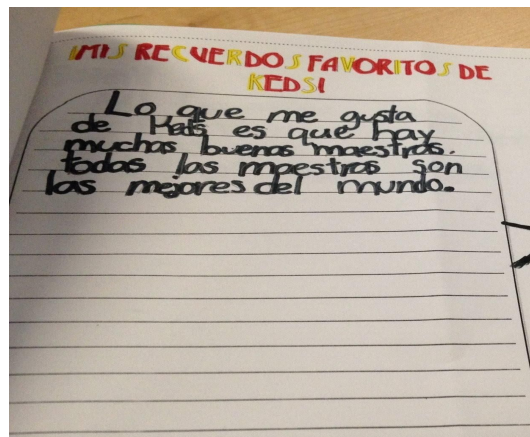 ¡MIS RECUERDOS FAVORITOS DE
KEDS!
Lo que me gusta
de Kets es que hay
muchas buenas maestras.
todas las maestras son
las mejores del mundo.